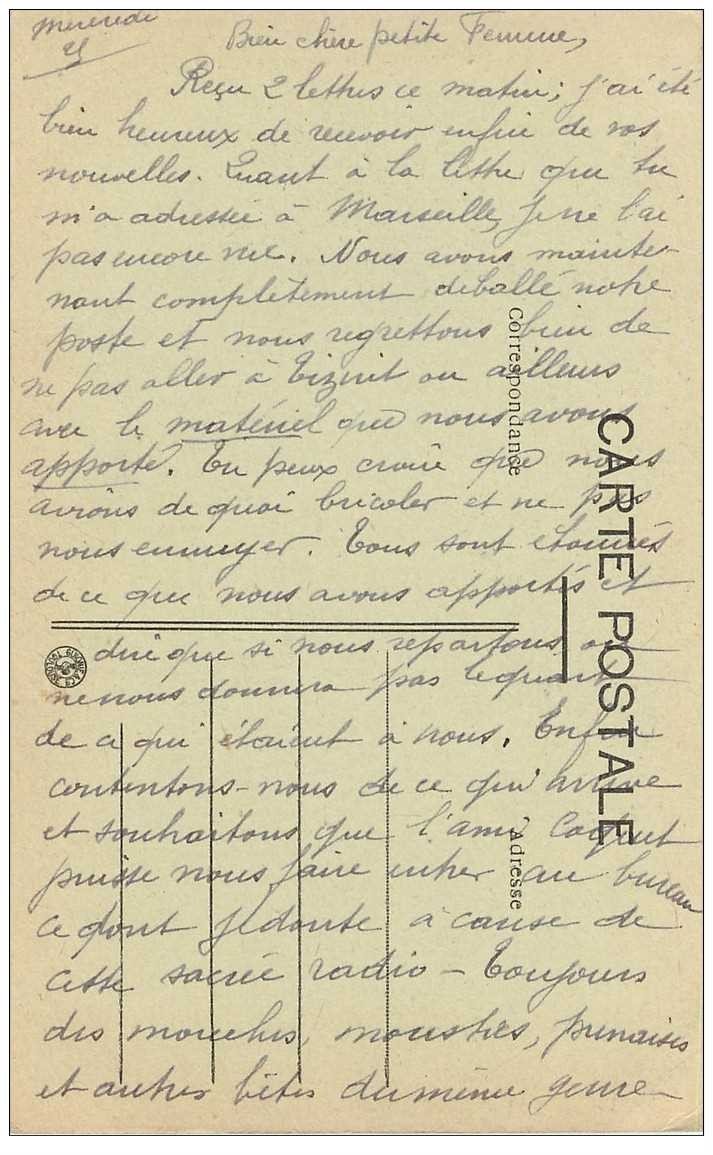 Mercredi
Bien chère petite Femme,
Reçu 2 lettres ce matin; j'ai été
bien heureux de recevoir enfin de vos
nouvelles. Quant à la lettre que tu
m'a adressée à Marseille, je ne l'ai
pas encore vue. Nous avons mainte-
nant complètement déballé notre
poste et nous regrettons bien de
ne pas aller à Tiznit ou ailleurs
avec le matériel que nous avons
apporté. Tu peux croire que nous
avions de quoi bricoler et ne pas
nous ennuyer. Tous sont étonnés
de ce que nous avons apportés et
dire que si nous repartons on
ne nous donnera pas le quart
de ce qui étaient à nous. Enfin
contentons-nous de ce qui arrive
et souhaitons que l'ami Coquet
puisse nous faire entrer au bureau
ce dont je doute à cause de
cette sacrée radio - Toujours
des mouches, moustres, punaises
et autres bêtes du même genre -
Correspondance
CARTE POSTALE
Adresse